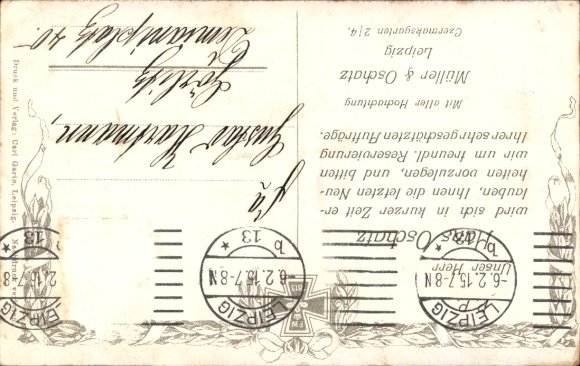 Unser Herr
Hans Oschatz
wird sich in kurzer Zeit er-
lauben, Ihnen die letzten Neu-
heiten vorzulegen, und bitten
wir um freundl. Reservierung
Ihrer sehr geschätzten Aufträge.
Mit aller Hochachtung
Müller & Oschatz
Leipzig
Czermaksgarten 2/4.
LEIPZIG
-6.2.15.7-8N
* b 13
LEIPZIG
-6.2.15.7-8N
* b 13
LEIPZIG
2.15.7-8
* 13
Fa
Gustav Hartmann,
Görlitz
Demianiplatz 40.
Druck und Verlag: Carl Garte, Leipzig.